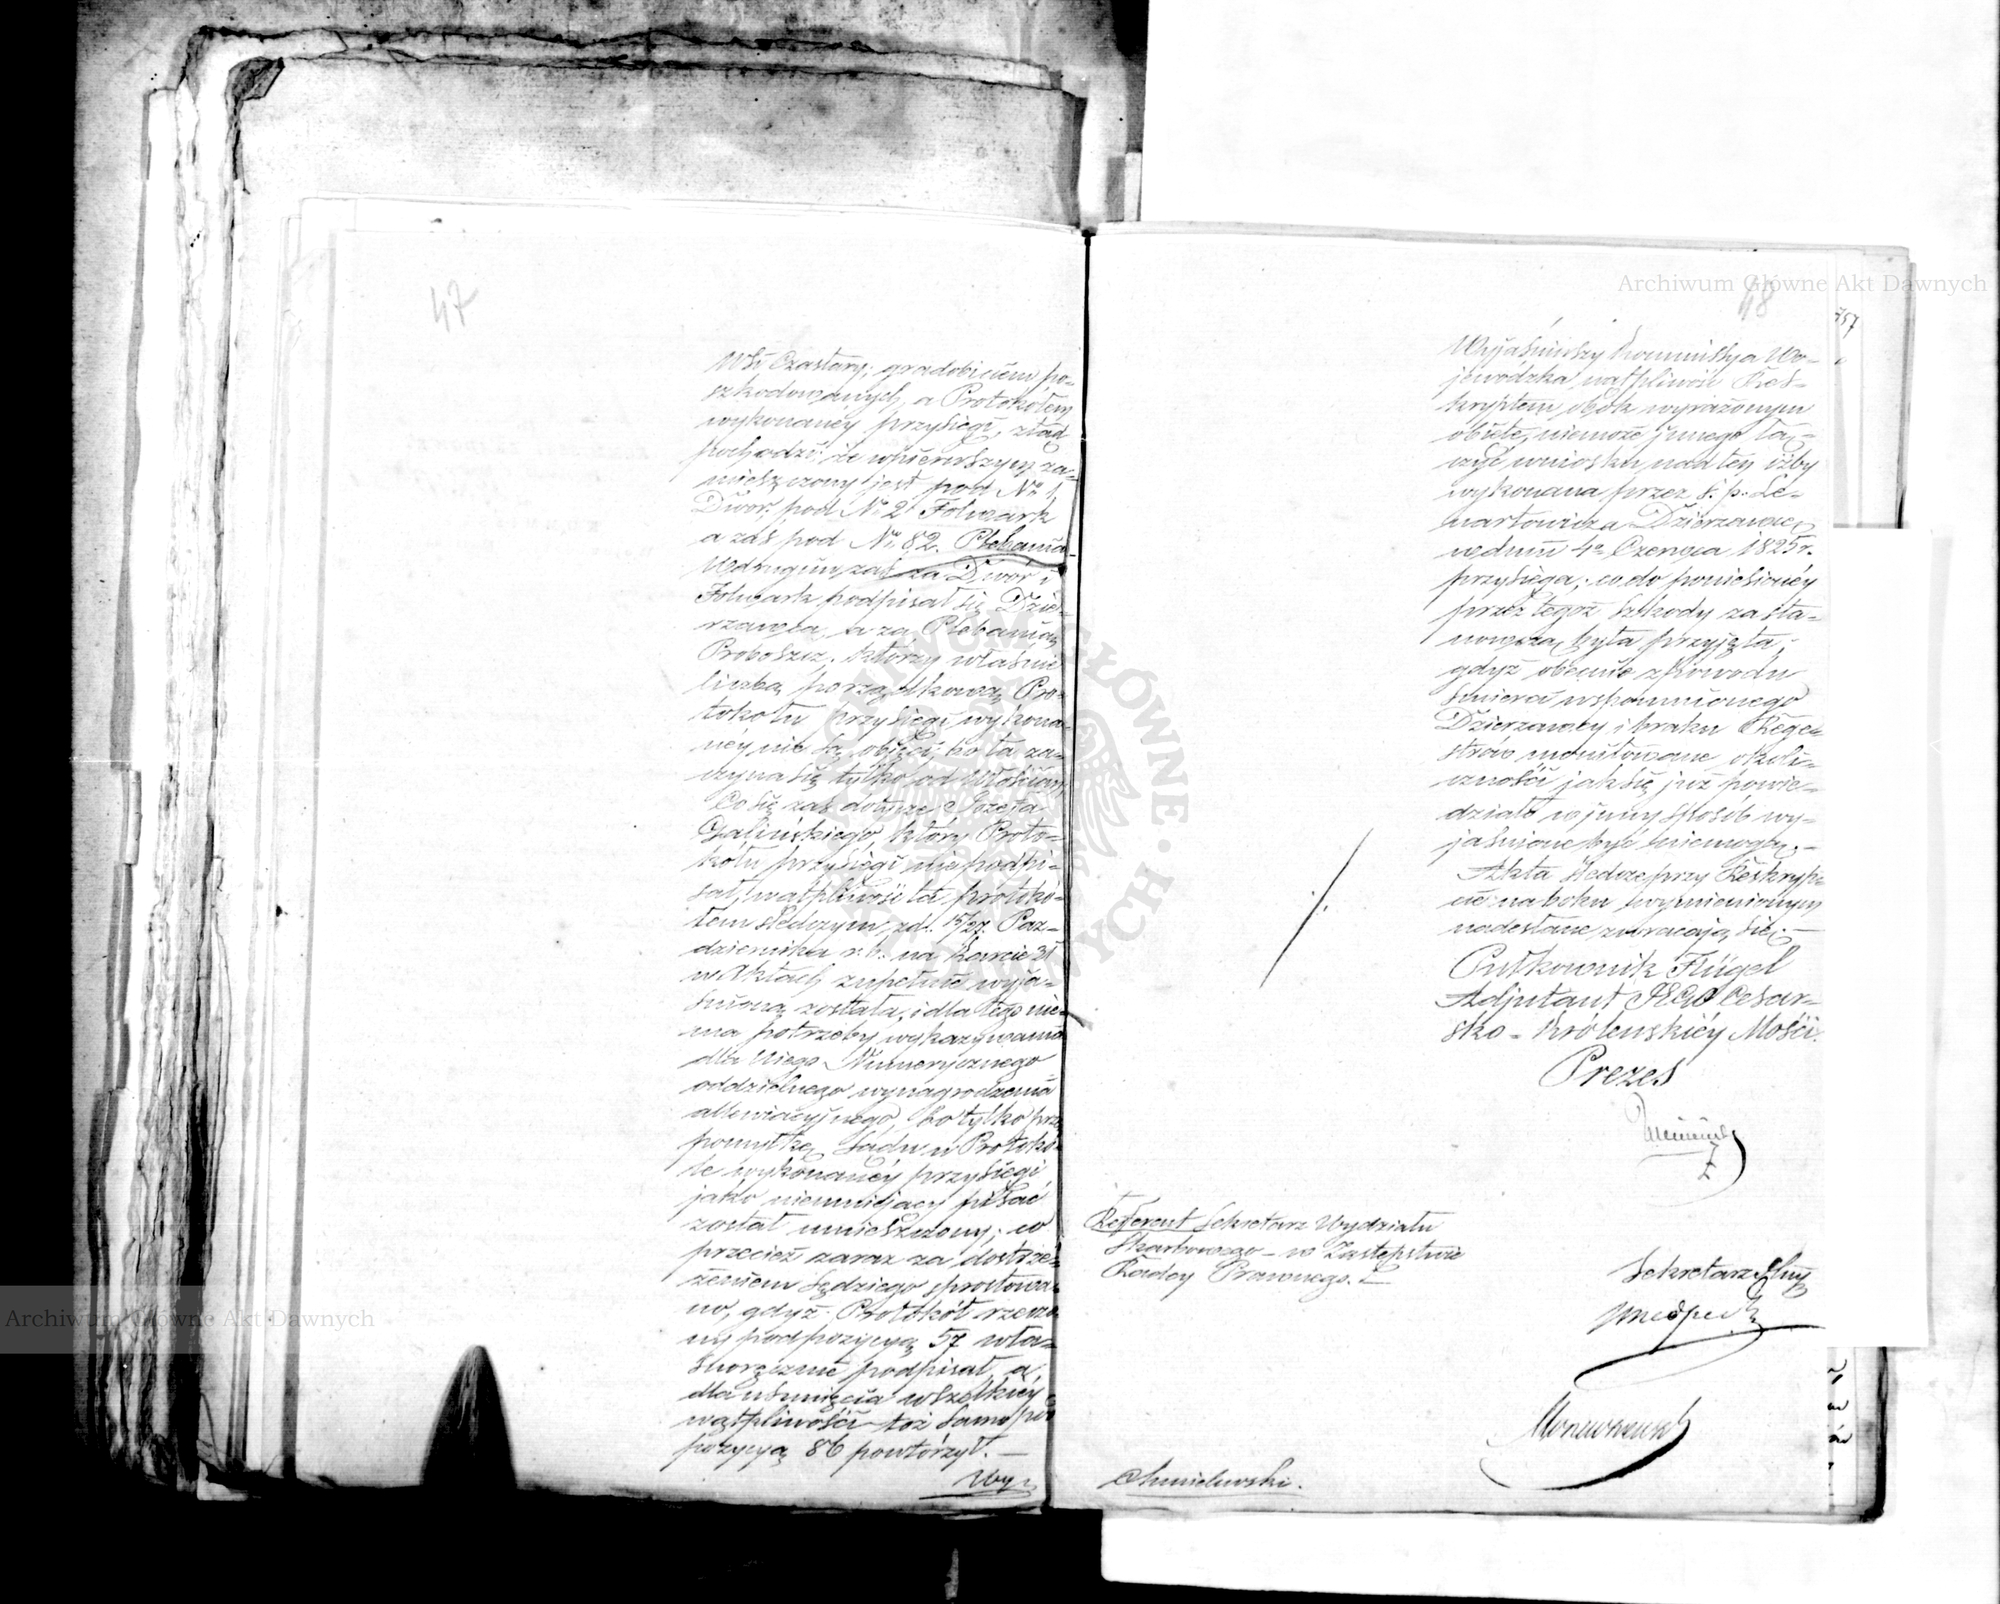 47
Wsi Czastary; gradobiciem po-
szkodowanych, a Protokołem
wykonanéy przysięgi, ztąd
pochodzi że w pierwszym za-
mieszczony jest pod Nr. 1.
Dwór pod Nr 2 Folwark
a zaś pod Nr. 82. Plebania
W drugim zaś za Dwór i
Folwark podpisał się Dzier-
żawca, a za Plebanią
Proboszcz, którzy właśnie
liczbą porządkową Pro-
tokołu przysięgi wykona-
néy nie są objęci, bo ta za-
czyna się tylko od Włościan
Co się zaś dotyczé Józefa
Galińskiego, który Proto-
kołu przysięgi nie podpi-
sał, wątpliwość ta protokó-
łem śledczym, zd. 15/27 Paz-
dziernika r. b. na Karcie 31
w Aktach zupełnie wyja-
śnioną została, i dla tego nie-
ma potrzeby wykazywania
dla Niego Numerycznego
oddzielnego wynagrodzenia
allewiacyjnego, bo tylko prze
pomyłkę Sądu w Protokó-
le wykonanéy przysięgi
jako nieumiejący pisać
został umieszczony; co
przecież zaraz za dostrze-
żeniem Sędziego sprostowa-
no, gdyż Protokół rzeczo-
ny pod pozycyą 57 wła-
snoręcznie podpisał, a
dla usunięcia wszelkiéy
wątpliwości toż samo pod
pozycyą 86 powtórzył. —
Wy-
48
Wyjaśniwszy Kommissya Wo-
jewódzka wątpliwość Res-
kryptem obok wyrażonym
objęte, niemoże innego łą-
czyć wniosku nad ten iżby
wykonana przez ś. p. Le-
nartowicza Dzierżawcę
w dniu 4o Czerwca 1825 r.
przysięga, co do poniesionéy
przez tegoż szkody za sta-
nowczą była przyjętą;
gdyż obecnie z powodu
śmierci wspomnionego
Dzierżawcy i braku Rege-
strów monitowane okoli-
czności jak się już powie-
działo w inny sposób wy-
jaśnione być niemogą. —
Akta śledcze przy Reskryp-
cie na boku wymienionym
nadesłane zwracają się. —
Pułkownik Flügel
Adjutant JEGO Cesar-
sko-Królewskiéy Mości.
Prezes
Referent Sekretarz Wydziału
Skarbowego - w Zastępstwie
Radcy Prawnego.
Sekretarz Jlny
Chmielewski.
757
Archiwum Główne Akt Dawnych
Archiwum Główne Akt Dawnych